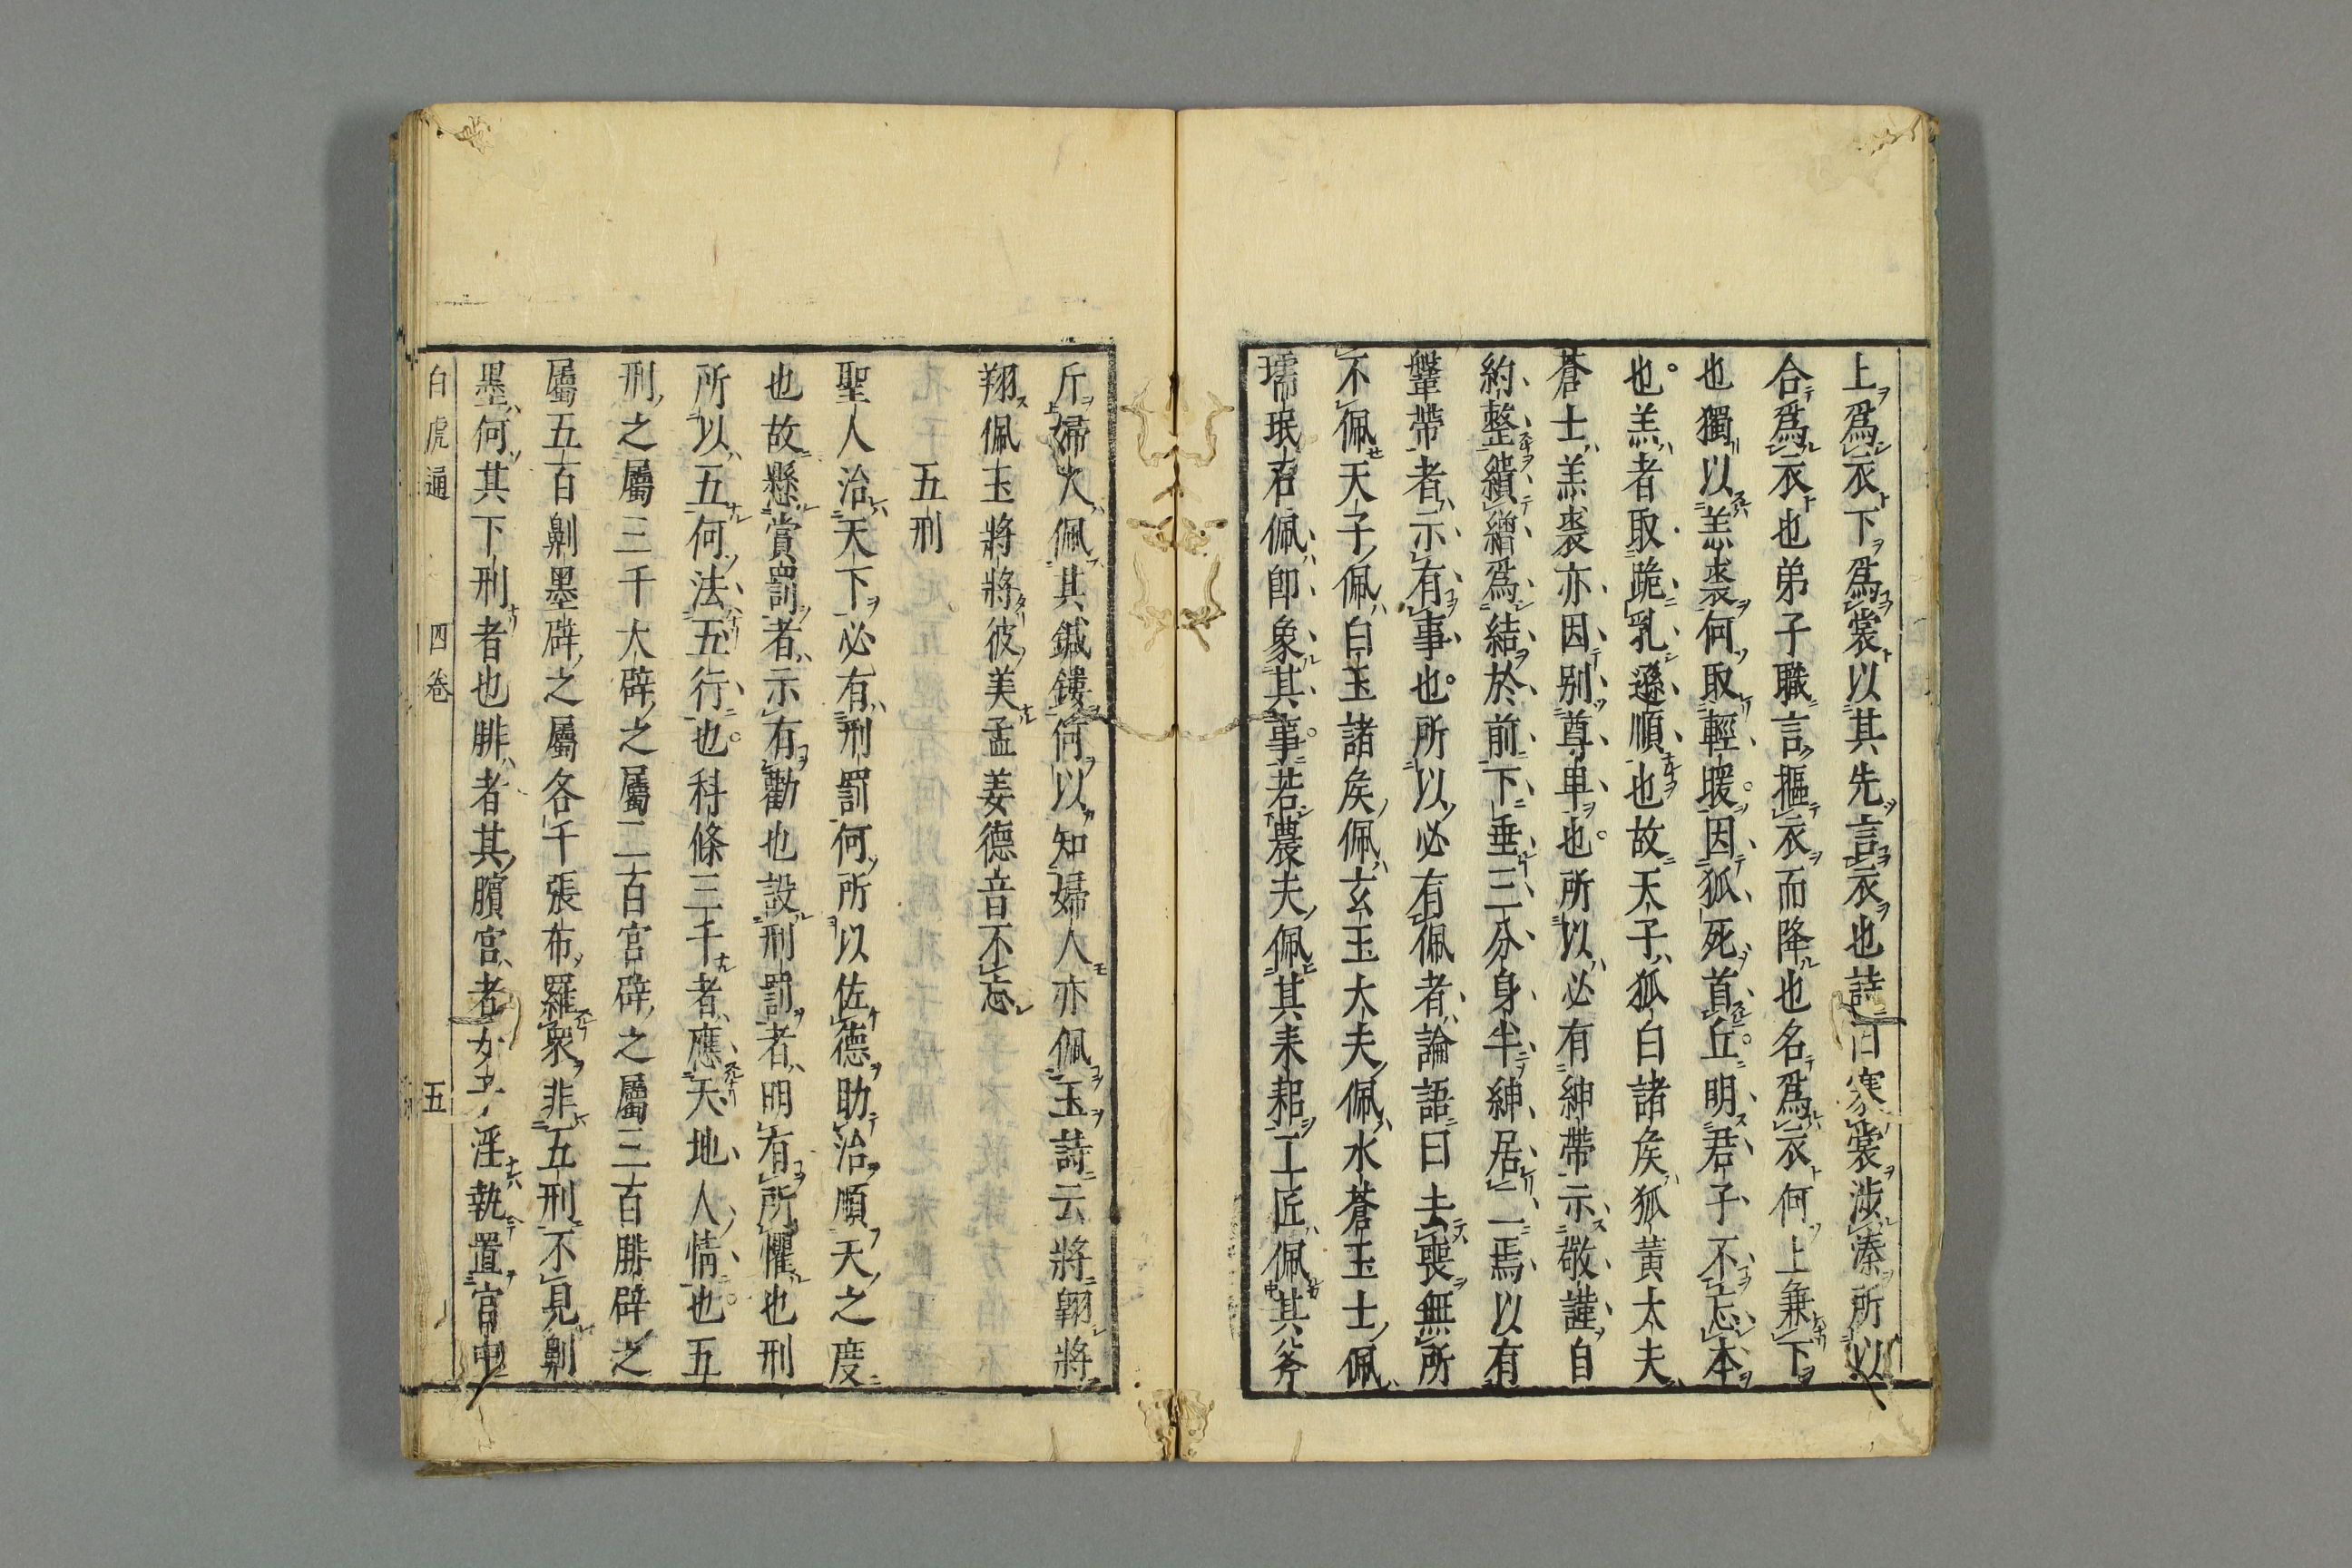 上爲衣下爲裳以其先言衣也詩曰褰裳涉溱所以
合爲衣也弟子職言摳衣而降也名爲衣何上兼下
也獨以羔裘何取輕暖因狐死首丘明君子不忘本
也羔者取跪乳遜順也故天子狐白諸矦狐黄大夫
蒼士羔裘亦因别尊卑也所以必有紳帶示敬謹自
約整繢繒爲結於前下垂三分身半紳居二焉以有
鞶帶者示有事也所以必有佩者論語曰去喪無所
不佩天子佩白玉諸矦佩玄玉大夫佩水蒼玉士佩
瓀珉石佩即象其事若農夫佩其耒耜工匠佩其斧
斤婦人佩其鍼鏤何以知婦人亦佩玉詩云將翱將
翔佩玉將將彼美孟姜德音不忘
五刑
聖人治天下必有刑罰何所以佐德助治順天之度
也故懸賞罰者示有勸也設刑罰者明有所懼也刑
所以五何法五行也科條三千者應天地人情也五
刑之屬三千大辟之屬二百宫辟之屬三百腓辟之
屬五百劓墨辟之屬各千張布羅衆非五刑不見劓
墨何其下刑者也腓者其臏宫者女子淫執置宫中
白虎通 四卷 五